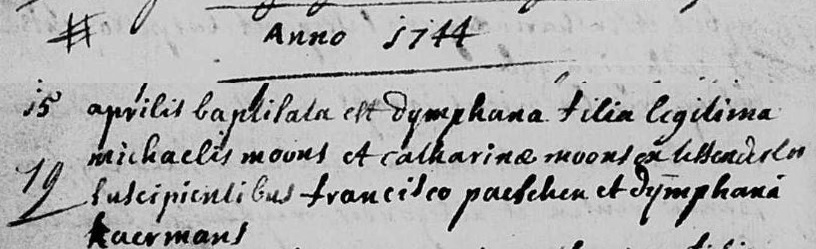 # Anno 1744
15 aprilis baptisata est dymphana filia legitima
michaelis moons et catharinæ moons ex
19 suscipientibus francisco paeschen et dÿmphana
kaermans